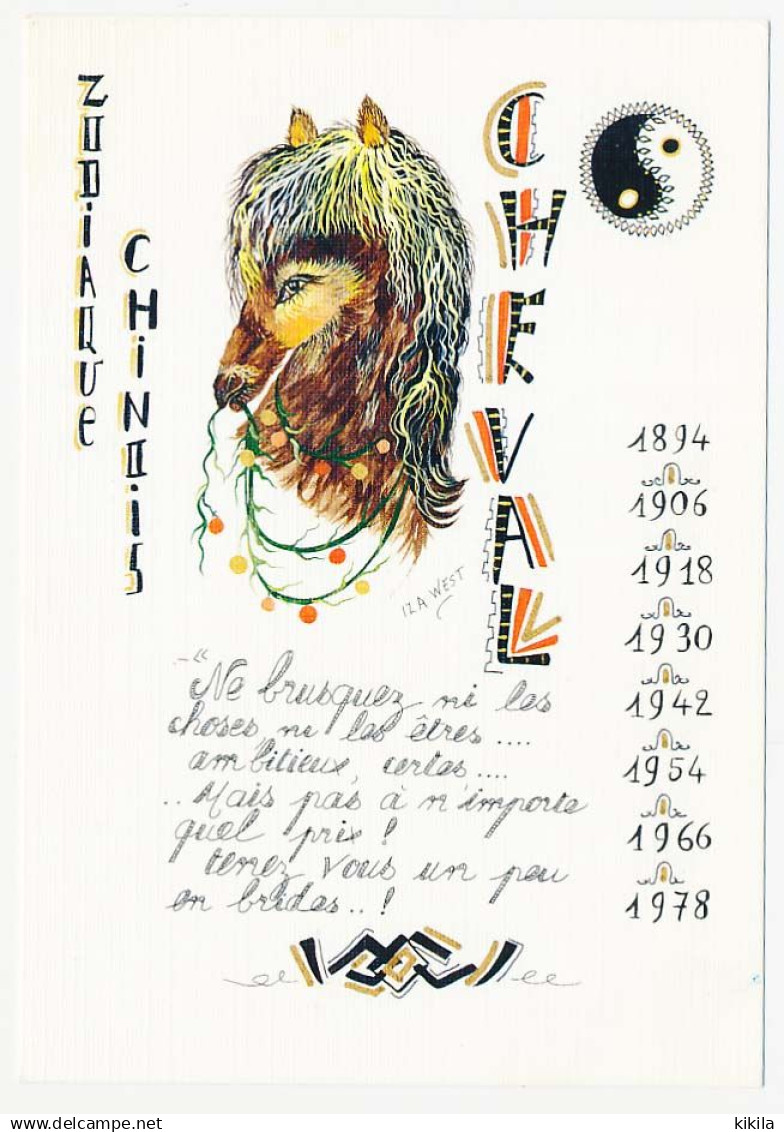 ZODIAQUE
CHINOIS
CHEVAL
IZA WEST
1894
1906
1918
1930
1942
1954
1966
1978
-"Ne brusquez ni les
choses, ni les êtres ....
ambitieux, certes....
..Mais pas à n'importe
quel prix !
tenez vous un peu
en brides..!
www.delcampe.net
kikila